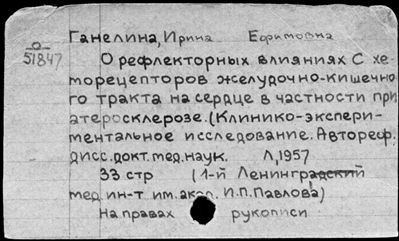 Ганелина, Ирина Ефимовна
О
51847
О рефлекторных влияниях с хе-
морецепторов желудочно-кишечно-
го тракта на сердце в частности при
атеросклерозе. (Клинико-экспери-
ментальное исследование. Автореф.
дисс. докт. мед. наук. Л, 1957
33 стр (1-й Ленинградский
мед. ин-т им. акад. И.П. Павлова)
На правах рукописи